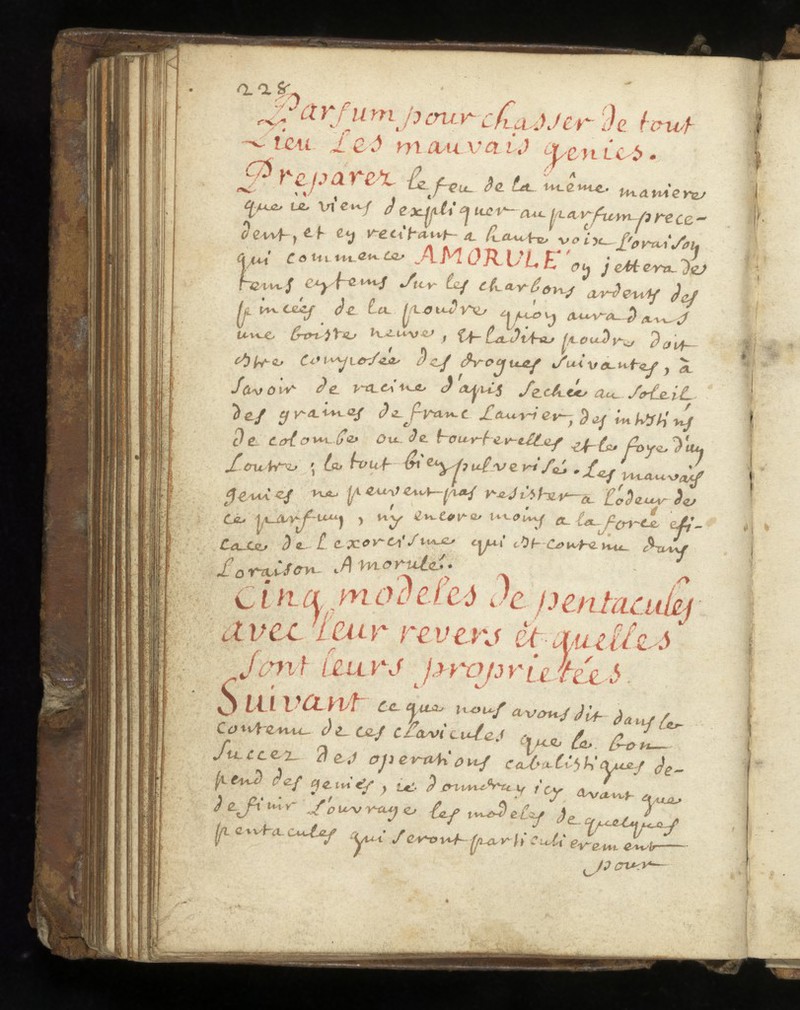 228
Parfum pour chasser de tout
Lieu Les mauvais genies.
Preparez le feu de la même maniere
que ie viens dexpliquer au parfum prece-
dent, et en recitant a haute voix L'oraison
qui commence AMORULE on jettera de
tems en tems sur les charbons ardents des
pincées de la poudre qu'on aura dans
une boiste neuve, Et Ladite poudre doit
estre composée des drogues suivantes, à
savoir de racine d'apis sechée au soleil
des graines de franc Laurier, des intistins
de colombe ou de tourterelles et le foye d'un
Loutre ; le tout bien pulverisé. Les mauvais
genies ne peuvent pas resister a Lodeur de
ce parfum, ny encore moins a la force efi-
cace de Lexorcisme qui est contenu dans
Loraison Amorulée.
Cinq modeles de pentacules
avec leur revers et quelles
sont leurs proprietées
Suivant ce que nous avons dit dans le
contenu de ces clavicules que le bon
succez des operations cabalistiques de-
pend des genies, ie donneray icy avant que
definir L'ouvrage les modeles de quelques
pentacules qui seront particulierement
pour